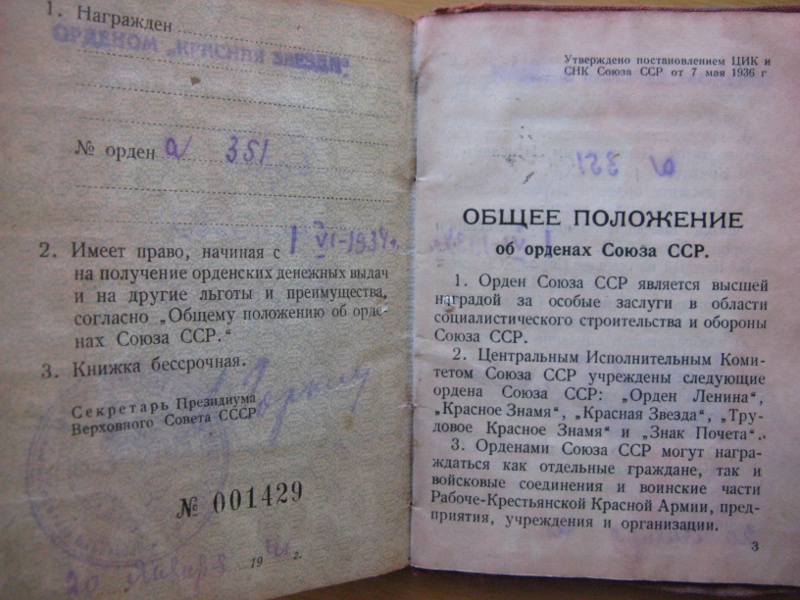 1. Награжден
ОРДЕНОМ „КРАСНАЯ ЗВЕЗДА"
№ орден а 351
2. Имеет право, начиная с 1 VI-1934 г.
на получение орденских денежных выдач
и на другие льготы и преимущества,
согласно „Общему положению об орде-
нах Союза ССР."
3. Книжка бессрочная.
Секретарь Президиума
Верховного Совета СССР
№ 001429
20 января 1941 г.
Утверждено постановлением ЦИК и
СНК Союза ССР от 7 мая 1936 г
ОБЩЕЕ ПОЛОЖЕНИЕ
об орденах Союза ССР.
1. Орден Союза ССР является высшей
наградой за особые заслуги в области
социалистического строительства и обороны
Союза ССР.
2. Центральным Исполнительным Коми-
тетом Союза ССР учреждены следующие
ордена Союза ССР: „Орден Ленина",
„Красное Знамя", „Красная Звезда", „Тру-
довое Красное Знамя" и „Знак Почета".
3. Орденами Союза ССР могут награ-
ждаться как отдельные граждане, так и
войсковые соединения и воинские части
Рабоче-Крестьянской Красной Армии, пред-
приятия, учреждения и организации.
3